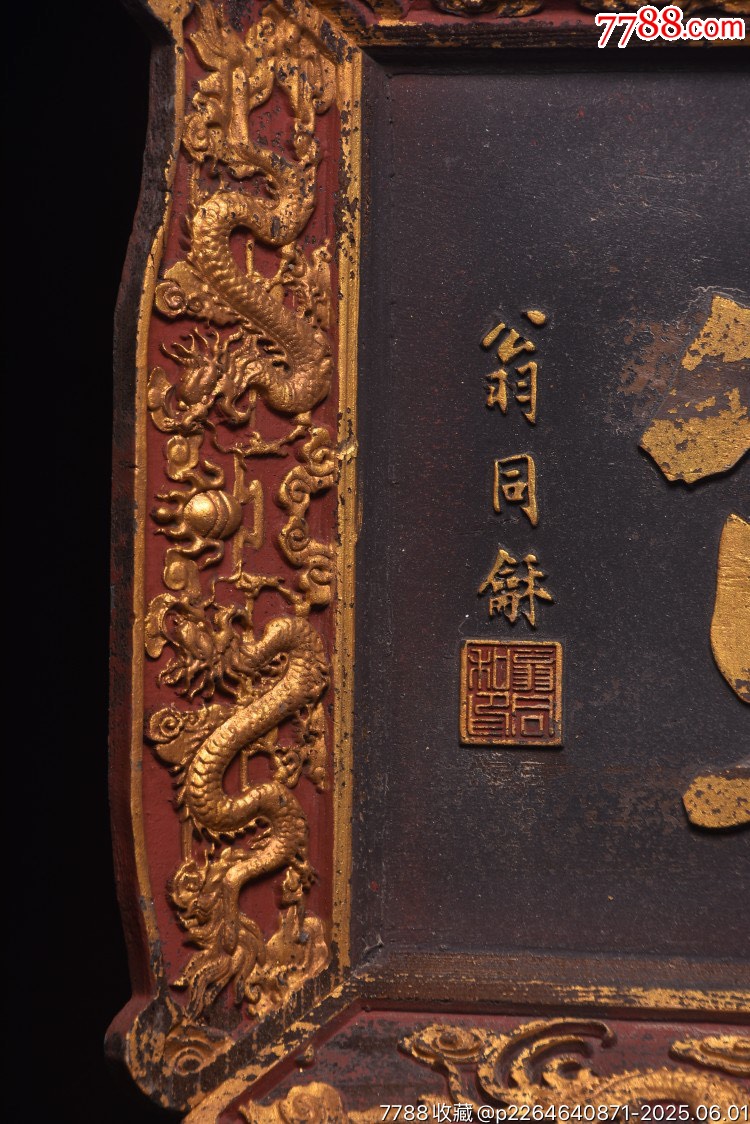 7788.com
翁同龢
翁同
龢印
7788收藏 @p2264640871-2025.06.01